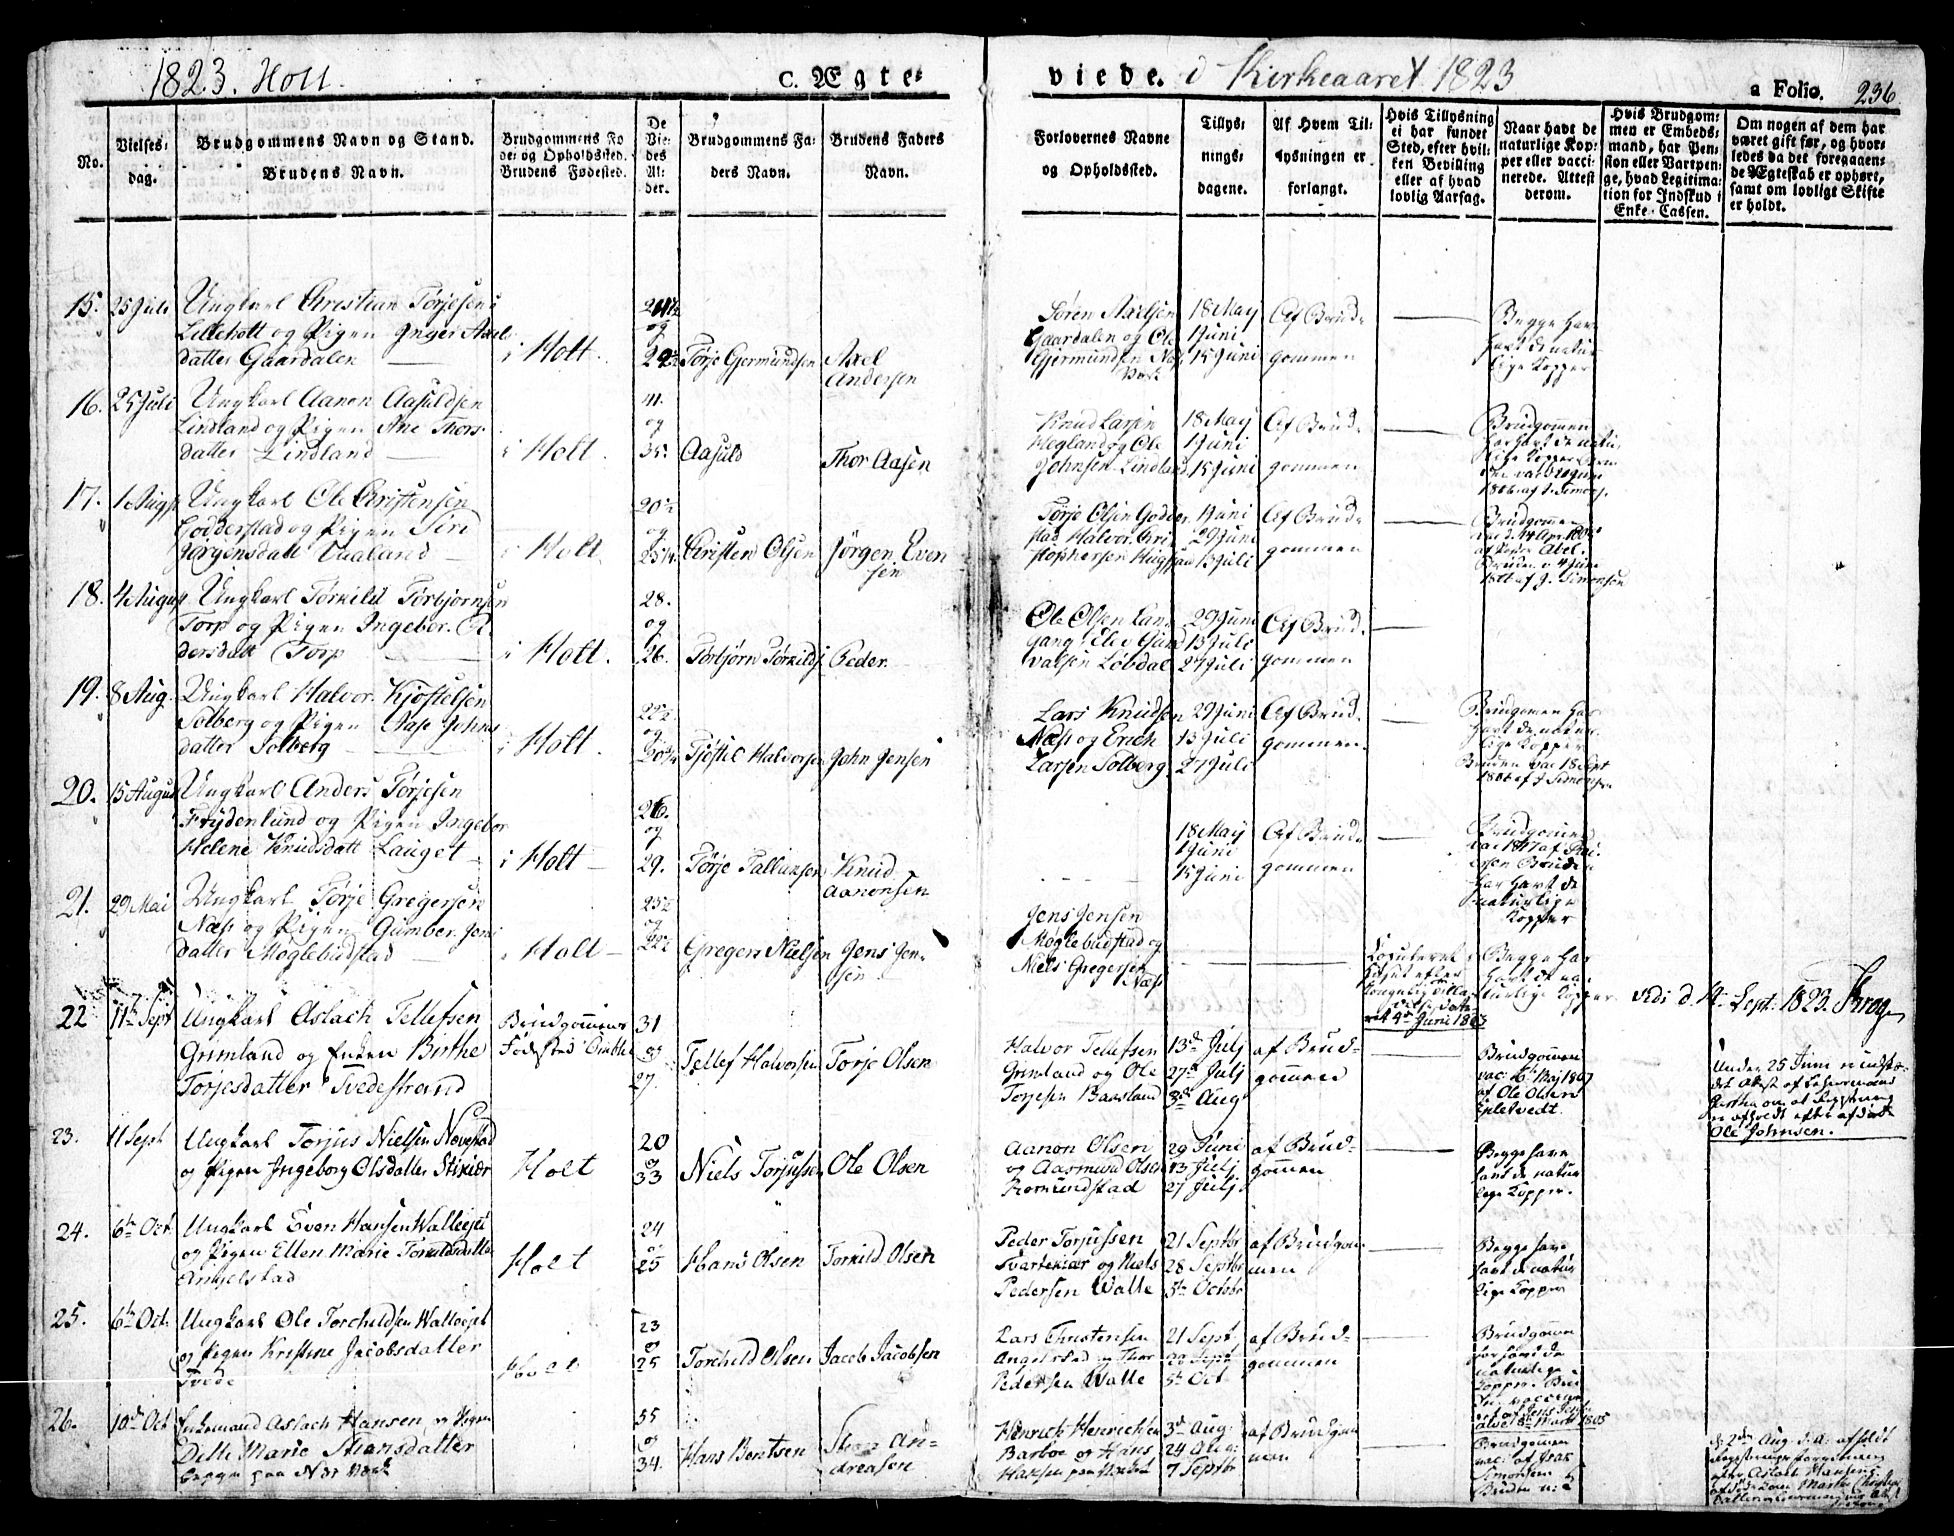 1823. Holt.
C. Ægte-
viede. i Kirkeaaret 1823
a Folio. 236
No.
Vielses-
dag.
Brudgommens Navn og Stand.
Brudens Navn.
Brudgommens Fø-
de- og Opholdssted.
Brudens Fødested.
De
Vie-
des
Al-
der.
Brudgommens Fa-
ders Navn.
Brudens Faders
Navn.
Forlovernes Navne
og Opholdssted.
Tillys-
nings-
dagene.
Af Hvem Til-
lysningen er
forlangt.
Hvis Tillysning
ei har fundet
Sted, efter hvil-
ken Bevilling
eller af hvad
lovlig Aarsag.
Naar havt de
naturlige Kop-
per eller vacci-
nerede. Attest
derom.
Hvis Brudgom-
men er Embeds-
mand, har Pen-
sion eller Vartpen-
ge, hvad Legitima-
tion for Indskud i
Enke-Cassen.
Om nogen af dem har
været gift før, og hvor-
ledes da det foregaaen-
de Ægteskab er ophørt,
samt om lovligt Skifte
er holdt.
15. 25 Juli
Ungkarl Christian Tørjesen
Lilleholt og Pigen Inger Axel-
datter Gaardalen
i Holt.
og
Tørje Gjermundsen
Axel
Andersen
Søren Axelsen
Gaardalen og Ole
Gjermundsen Næs
Værk
18 May
1 Juni
15 Juni
Af Brud-
gommen
Begge har
havt de natur-
lige Kopper
16. 25 Juli
Ungkarl Aanon Aasuldsen
Lindland og Pigen Ane Thors-
datter Lindland
i Holt.
41.
og
35.
Aasuld
Thor Aasen
Knud Larsen
Hegland og Ole
Johnsen Lindland
18 May
1 Juni
15 Juni
Af Brud-
gommen
Brudgommen
har havt de natur-
lige Kopper
1806 af J. Simons.
17. 1 Augst
Ungkarl Ole Christensen
Godderstad og Pigen Siri
Jørgensdatt Vaaland
i Holt
og
Christen Olsen
Jørgen Even
sen
Tørje Olsen Godder-
stad Halvor Cri-
stophersen
1 Juni
29 Juni
13 Juli
Af Brud-
gommen
Brudgommen
af Abel.
Bruden 4 Juni
af J. Simonsen
18. 4 August
Ungkarl Tørkild Tørbjørnsen
Torp og Pigen Ingebor. Pe-
dersdatt Torp
i Holt.
28.
og
26.
Tørbjørn Tørkilds.
Peder
Ole Olsen Lan-
gang. Elev Gund-
valsen Løbdal
29 Juni
13 Juli
27 Juli
Af Brud-
gommen
19. 8 Aug.
Ungkarl Halvor. Kjøstelsen
Solberg og Pigen Aase Johns
datter Solberg
i Holt.
og
Tjøstil Halvorsen
John Jensen
Lars Knudsen
Næs og Erich
Larsen Solberg.
29 Juni
13 Juli
27 Juli
Af Brud-
gommen.
Brudgomen har
havt de natur-
lige Kopper
Bruden vac 18 Sept
1806 af J Simonsen
20. 15 August
Ungkarl Anders Tørjesen
Frydenlund og Pigen Ingebor
Helene Knudsdatt Lauget
i Holt
26.
og
29.
Tørje Tallaksen
Knud
Aanonsen
18 May
1 Juni
15 Juni
Af Brud-
gommen
Brudgommen
Bruden
har havt de
naturlige
Kopper
21. 29 Mai
Ungkarl Tørje Gregersen
Næs og Pigen Gumber. Jens
datter Møglebudstad
i Holt
og
Gregers Nielsen
Jens Jen-
sen
Jens Jensen
Møglebudstad og
Niels Gregersen
Næs
Copuleret
i Huset efter
Kongelig Tilla-
delse
Begge har
havt de na-
turlige Kopper.
Vidi d. 14 Sept: 1823. Krog
22 11te Sept
Ungkarl Aslach Tellefsen
Grimland og Enken Birthe
Torjesdatter Tvedestrand
Brudgommens
Fødested Omble
31
og
27.
Tellef Halvorsen
Torje Olsen
Halvor Tellefsen
Grimland og Ole
Torjesen Baasland
13de Julj
27de Julj
3de Aug
af Brud-
gommen
Brudgommen
vac: 16 Maj 1807
af Ole Olsen
Egelvedt.
Under 25 Juni
er afholdt efter afdøde
Ole Johnsen.
23. 11 Sept
Ungkarl Torjus Nielsen Navestad
og Pigen Ingeborg Olsdatter Stikier
Holt
20
og
33
Niels Torjussen
Ole Olsen
Aanon Olsen
og Aasmund Olsen
Romundstad
29 Juni
13 Julj
27 Julj
af Brud-
gommen
Begge have
havt de natur-
lige Kopper.
24. 6te Oct.
Ungkarl Even Hansen Walleejet
og Pigen Ellen Marie Torkildsdatter
Angelstad
Holt
24
og
25
Hans Olsen
Torkild Olsen
Peder Torjussen
Svartekiær og Niels
Pedersen Walle
21 Septbr
28 Septbr
5te Octobr
af Brudgom-
men
Begge have
havt de natur-
lige Kopper
25. 6te Oct.
Ungkarl Ole Torchildsen Walleejet
og Pigen Kirstine Jacobsdatter
Tvede
Holt
23
og
25
Torchild Olsen
Jacob Jacobsen
Lars Christensen
Angelstad og Thor
Pedersen Walle
21 Sept.
28 Sept
5te Oct
af Brud-
gommen
Brudgommen
har havt de
naturlige
Kopper.
26. 10de Oct
Enkemand Aslach Hansen og Pigen
Ditte Marie Steensdatter
begge paa Næs Værk
55
og
34.
Hans Bentsen
Steen An-
dreasen
Henrich Henrichsen
Barboe og Hans
Hansen paa Værket
3de Aug:
24 Aug:
7 Septbr
af Brudgom-
men
Brudgommen
vac: af Isak
Simonsen
d: 2den Aug. d: A: afholdt
efter Aslach Hansens